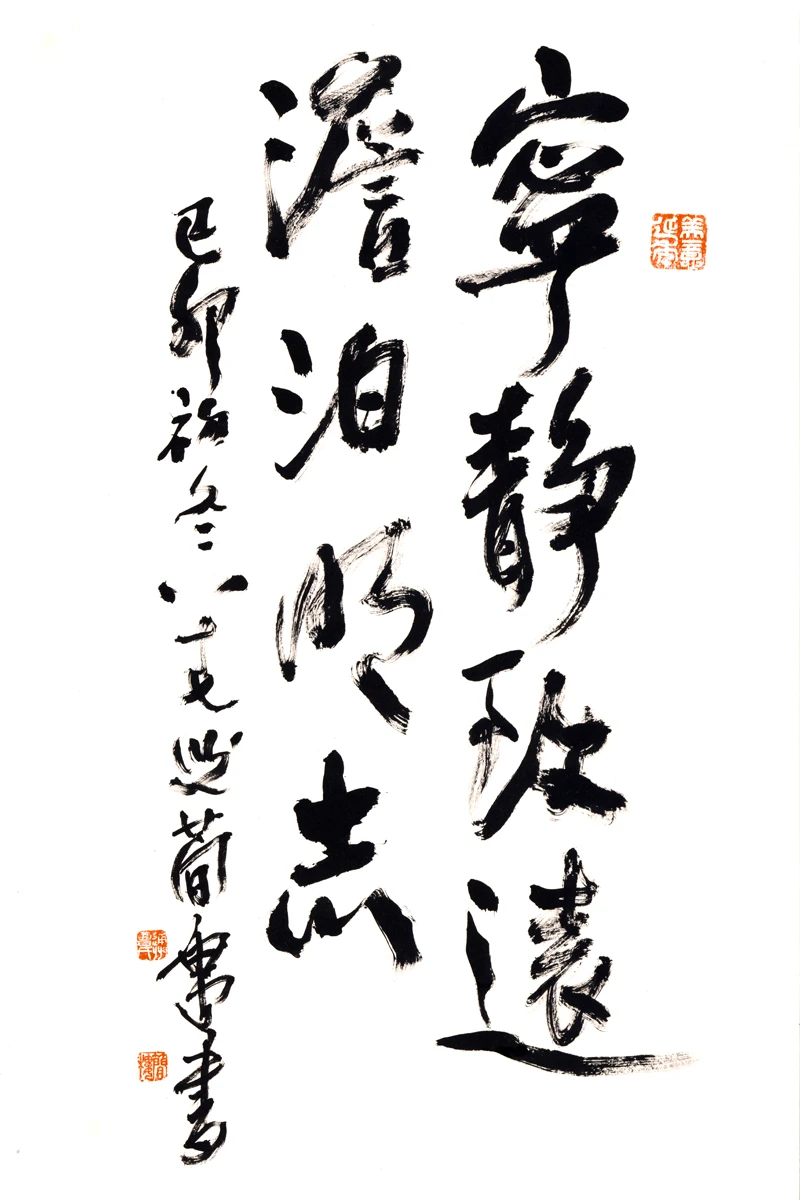 寧靜致遠
澹泊明志
己卯初冬八十七叟荀運書